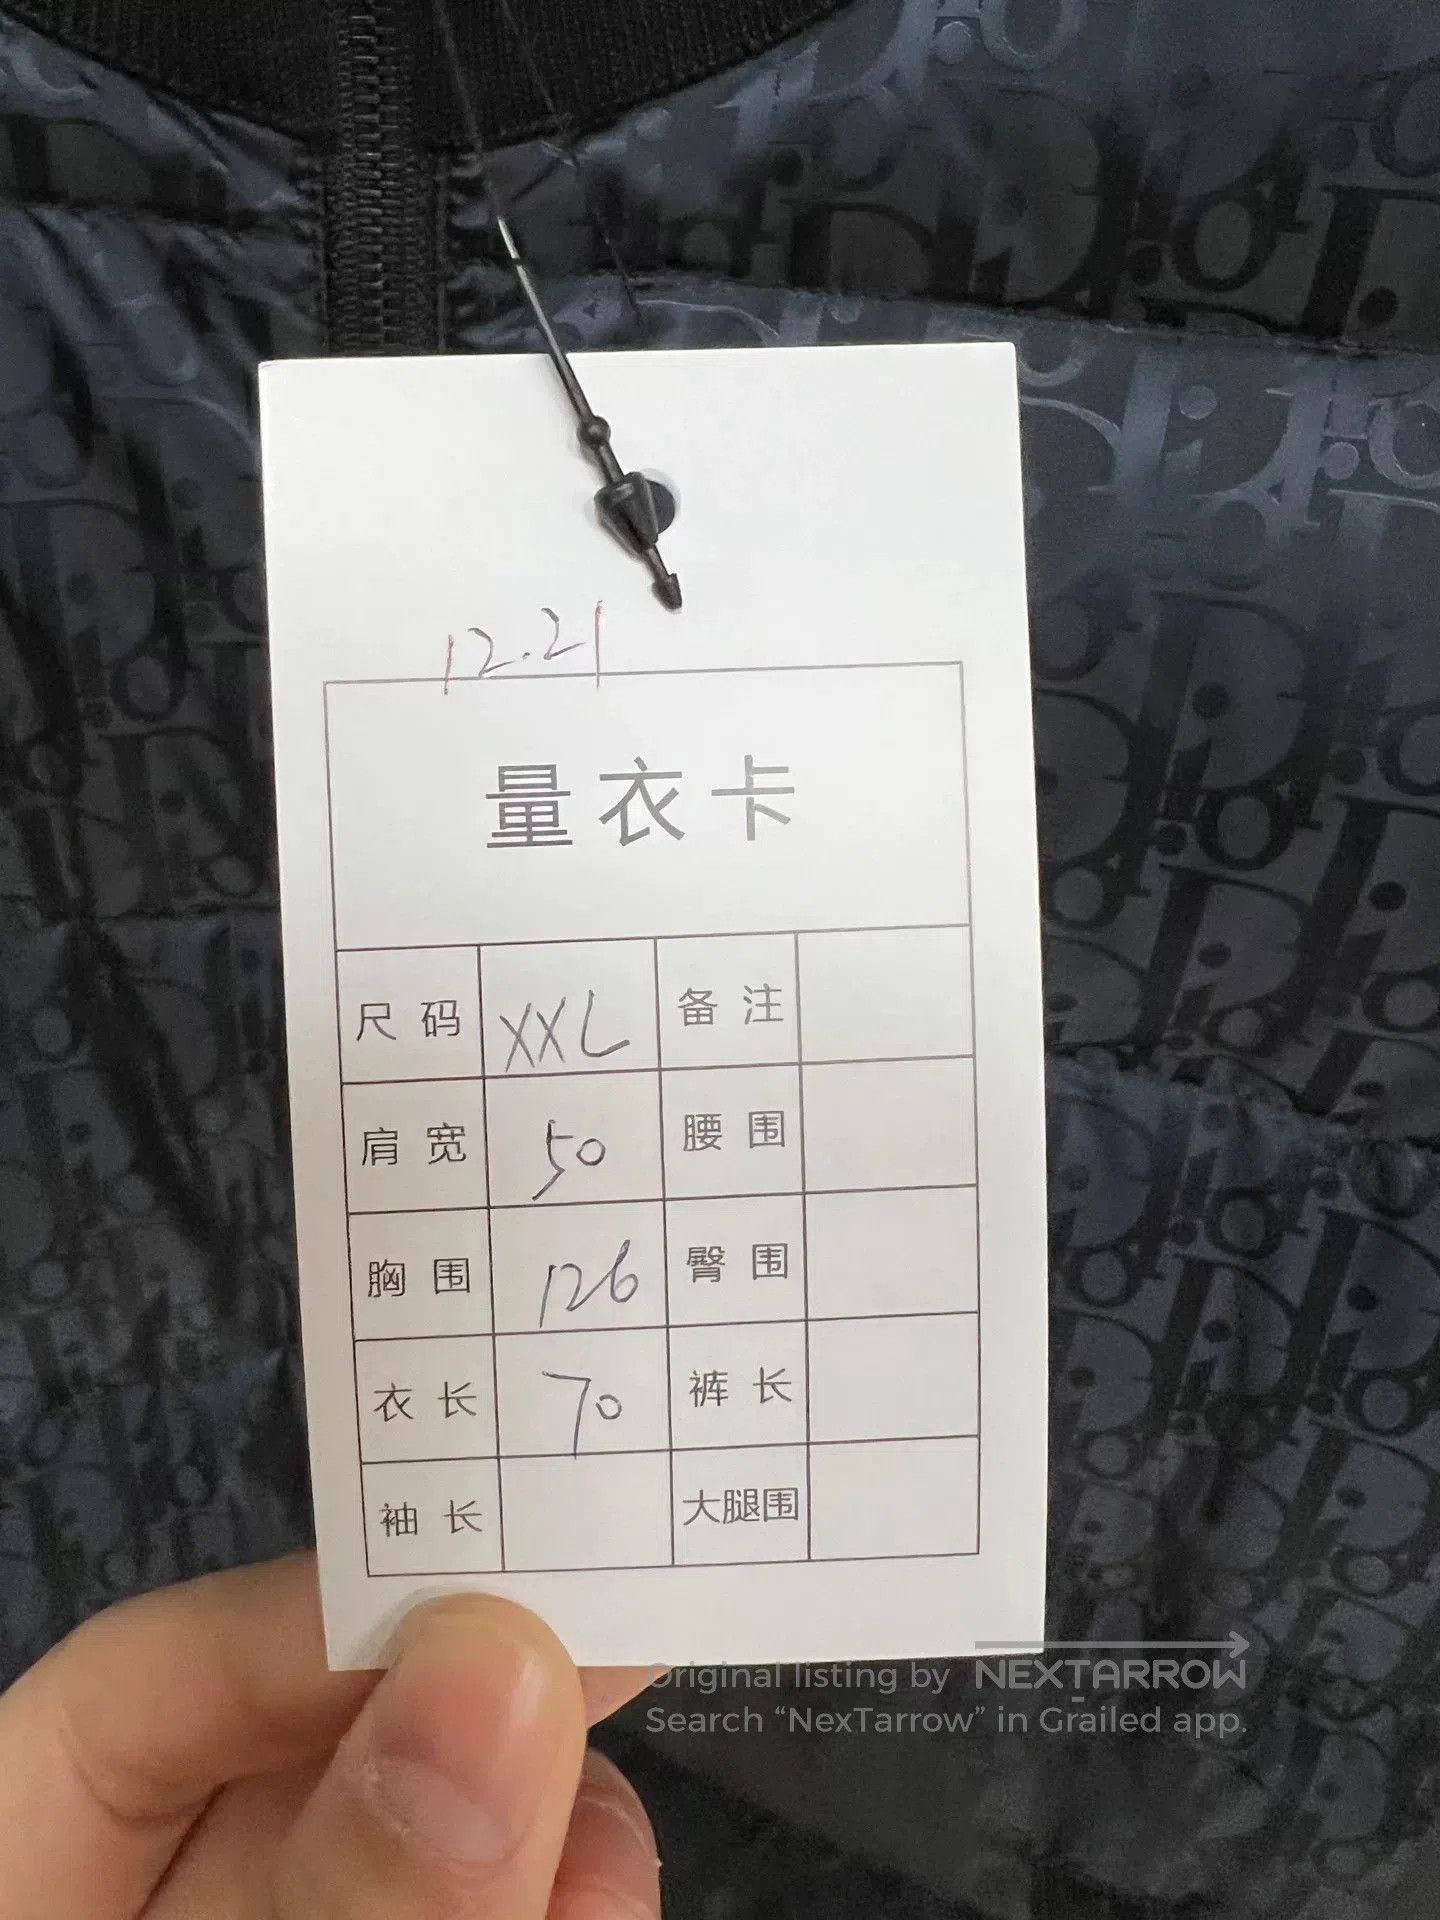 12.21
量衣卡
尺码 XXL 备注
肩宽 50 腰围
胸围 126 臀围
衣长 70 裤长
袖长 大腿围
Original listing by NEXTARROW
Search “NexTarrow” in Grailed app.